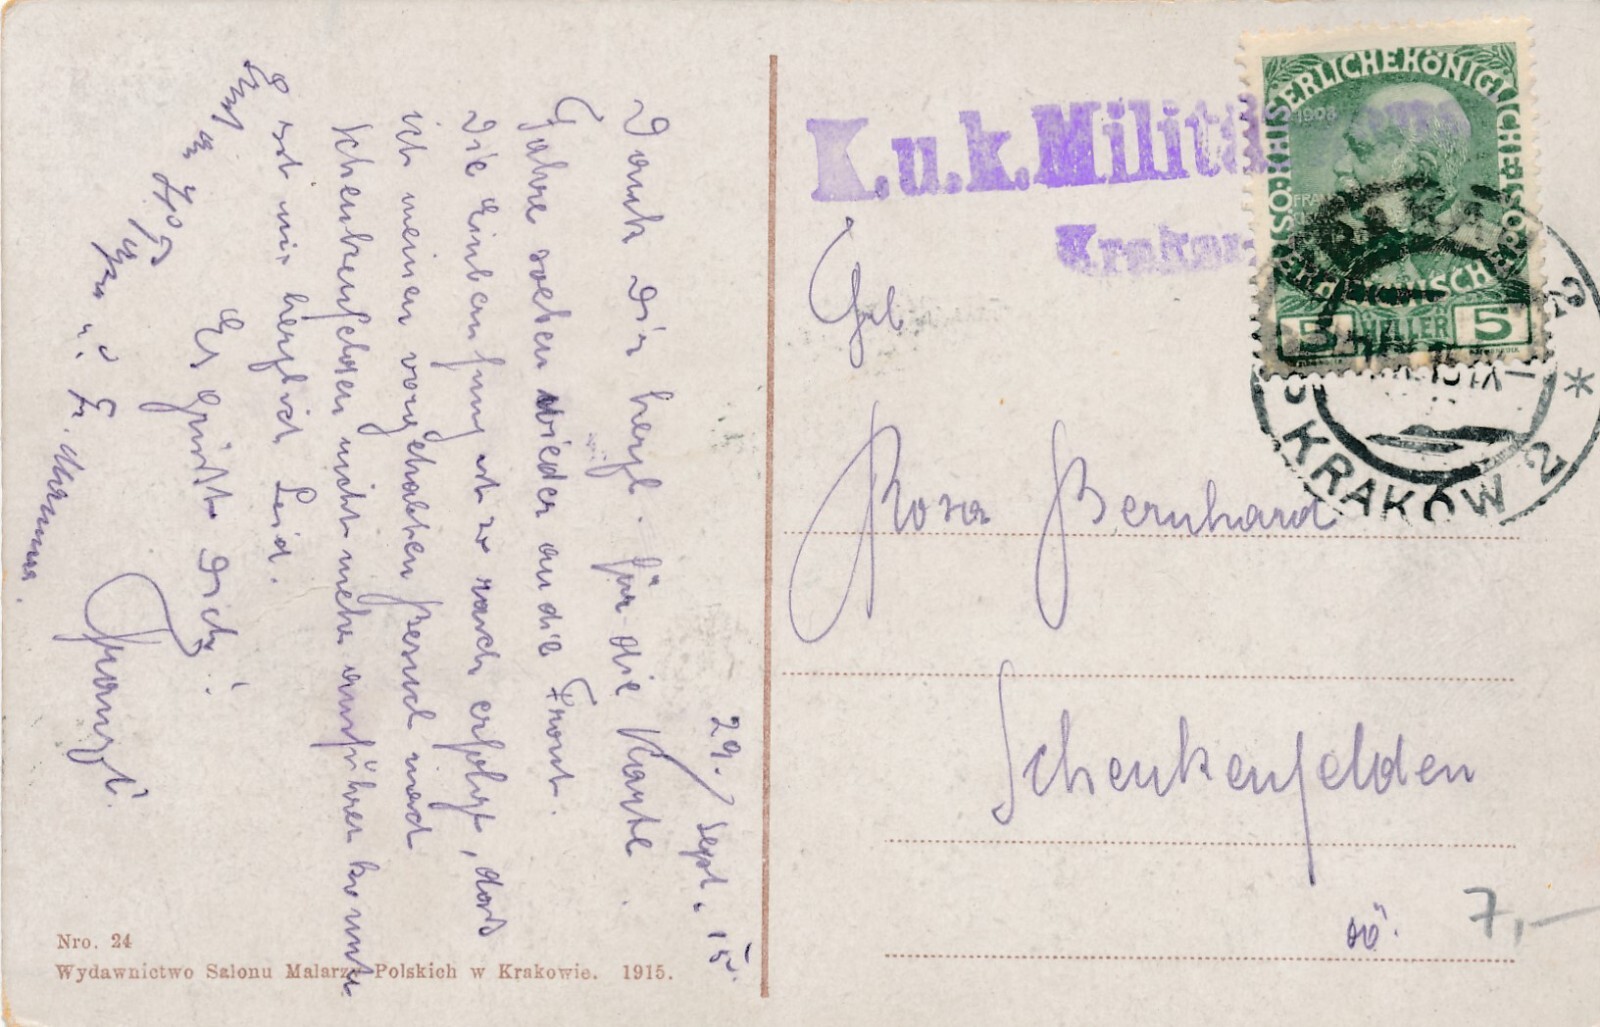 29./Sept. 15.
Dank Dir herzl. für die Karte.
Fahre soeben wieder an die Front.
Die Einberufung ist so rasch erfolgt, daß
ich meinen vorgehabten Besuch nach
Schenkenfelden nicht mehr ausführen konnte.
Es tut mir herzlich Leid.
Es grüßt Dich
Franzl.
Gruß an
Mamma.
Nro. 24
Wydawnictwo Salonu Malarzy Polskich w Krakowie. 1915.
K.u.k. Militär
Krakau
KAISERLICHE KÖNIGLICHE ÖSTERREICHISCHE
1908
5 HELLER 5
KRAKÓW 2
Rosa Bernhard
Schenkenfelden
oö.
7,—